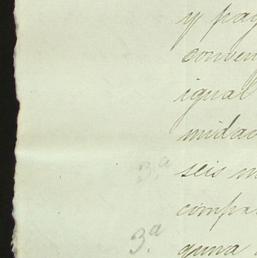 y pag
conven
igual
midad
seis m
3.a
compa
3.a
guna